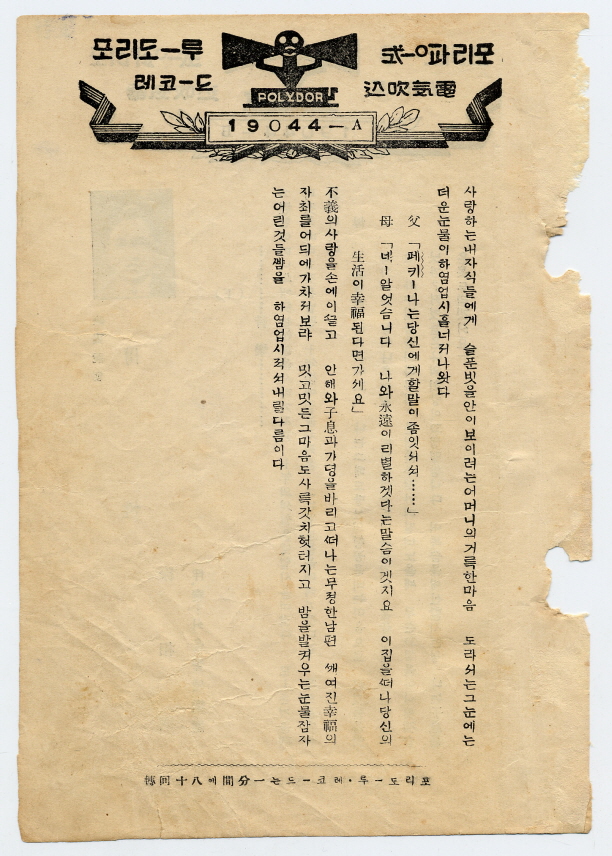 포리도ー루
레코ー드
電氣吹込
POLYDOR
19044-A
사랑하는내자식들에게 슬푼빗을안이보이려는어머니의거룩한마음 도라서는그눈에는
더운눈물이하염업시흘너저나왓다
父「페키ー나는당신에게할말이좀잇서서……」
母「네ー알엇습니다 나와永遠이리별하겟다는말슴이겟지요 이집을떠나당신의
生活이幸福된다면가세요」
不義의사랑을손에이끌고 안해와子息과가뎡을바리고떠나는무정한남편 깨여진幸福의
자최를어듸에가차저보랴 밋고밋든그마음도사륵갓치헛터지고 밤을발켜우는눈물잠자
는어린것들뺨을 하염업시적셔내릴다름이다
포리도ー루・레코ー드는一分間에八十回轉